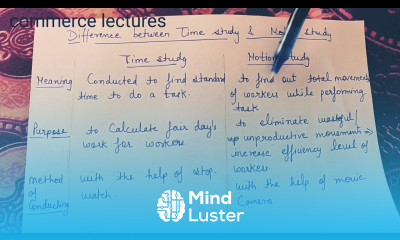 commerce lectures
Difference between Time study & Motion study
Time study
Motion study
Meaning
Conducted to find standard
time to do a task.
to find out total movements
of workers while performing
task
Purpose
to Calculate fair day's
work for workers
to eliminate wasteful/
unproductive movements ⇒
increase efficiency level of
workers
Method
of
Conducting
with the help of stop-
watch
with the help of movie
Camera
Mind
Luster